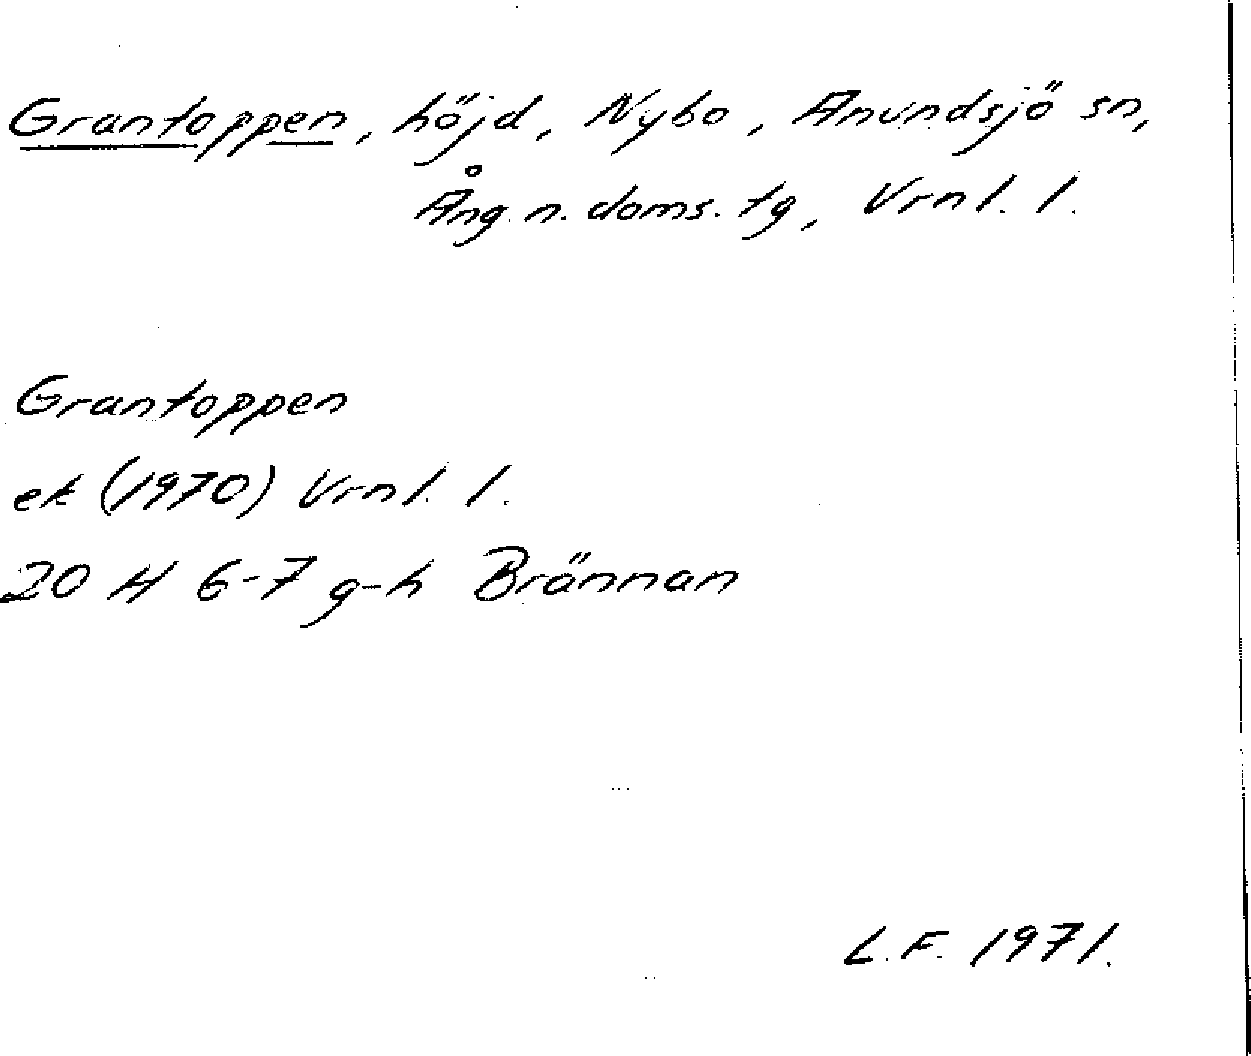 Grantoppen, höjd, Nybo, Anundsjö sn,
Ång. n. doms. tg, Vrnl. l.
Grantoppen
ek (1970) Vrnl. l.
20 H 6-7 g-h Brännan
L.F. 1971.